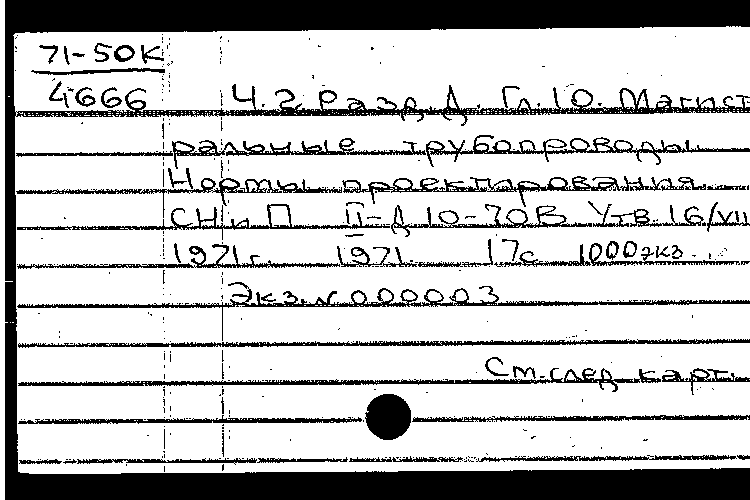 71-50К
4666 Ч.2. Разд.Д. Гл.10. Магист
ральные трубопроводы.
Нормы проектирования.
СНиП II-Д.10-70В. Утв.16/VII
1971г. 1971. 17с 1000экз.
Экз.N 000003
См.след. карт.